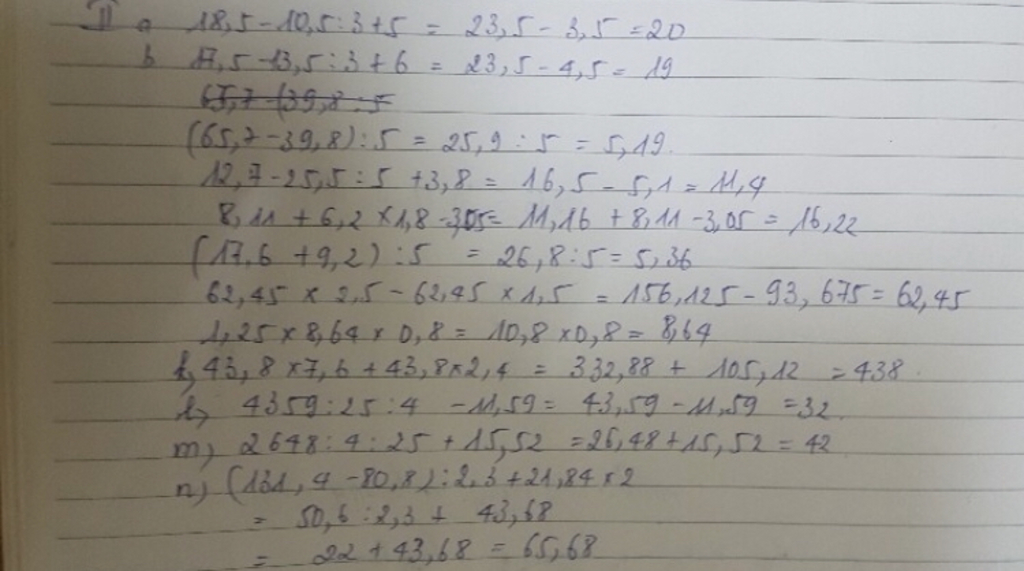 II a 18,5 - 10,5 : 3 + 5 = 23,5 - 3,5 = 20
b 17,5 - 13,5 : 3 + 6 = 23,5 - 4,5 = 19
65,7 - (39,8 : 5
(65,7 - 39,8) : 5 = 25,9 : 5 = 5,19.
12,7 - 25,5 : 5 + 3,8 = 16,5 - 5,1 = 11,4
8,11 + 6,2 × 1,8 - 3,05 = 11,16 + 8,11 - 3,05 = 16,22
(17,6 + 9,2) : 5 = 26,8 : 5 = 5,36
62,45 × 2,5 - 62,45 × 1,5 = 156,125 - 93,675 = 62,45
1,25 × 8,64 × 0,8 = 10,8 × 0,8 = 8,64
k, 43,8 × 7,6 + 43,8 × 2,4 = 332,88 + 105,12 = 438.
l, 4359 : 25 : 4 - 11,59 = 43,59 - 11,59 = 32.
m, 2648 : 4 : 25 + 15,52 = 26,48 + 15,52 = 42
n, (131,4 - 80,8) : 2,3 + 21,84 × 2
= 50,6 : 2,3 + 43,68
= 22 + 43,68 = 65,68